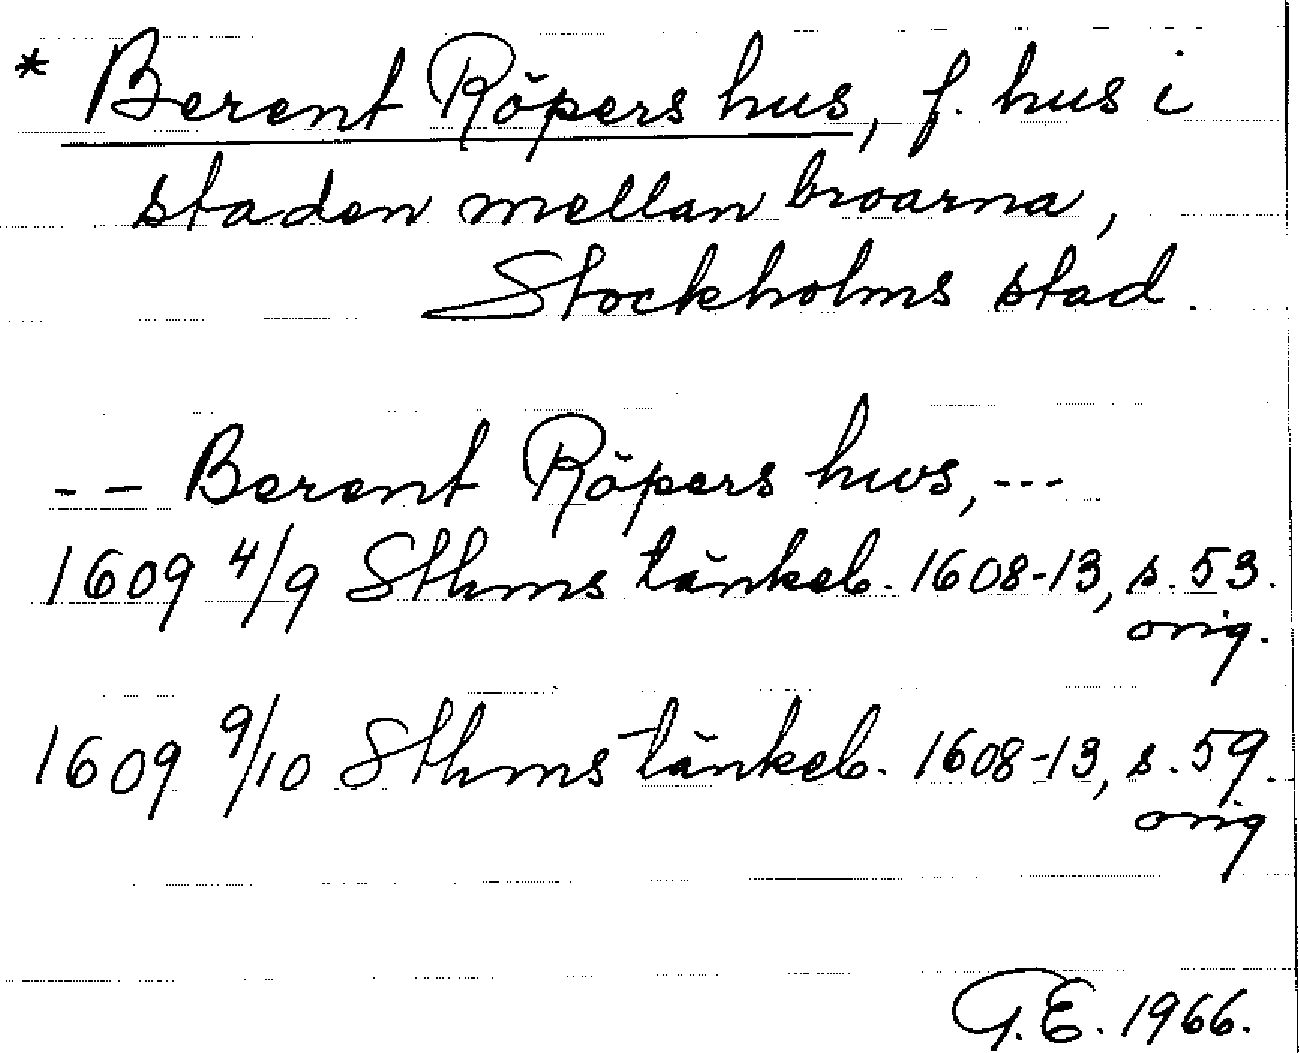 * Berent Röpers hus, f. hus i
staden mellan broarna,
Stockholms stad.
-- Berent Röpers hws, ---
1609 4/9 Sthms tänkeb. 1608-13, s. 53.
orig.
1609 9/10 Sthms tänkeb. 1608-13, s. 59.
orig
G.E. 1966.